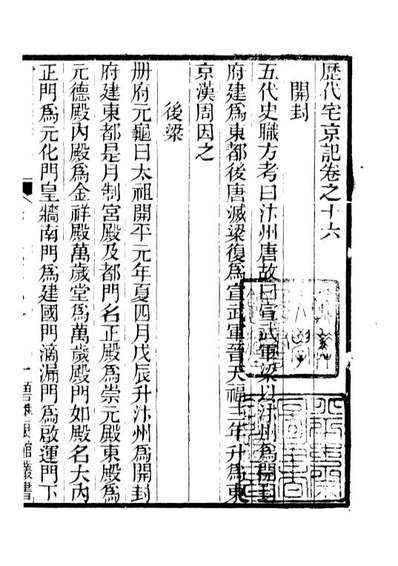 歷代宅京記卷之十六
開封
五代史職方考曰汴州唐故曰宣武軍梁以汴州為開封
府建為東都後唐滅梁復為宣武軍晉天福三年升為東
京漢周因之
後梁
册府元龜曰太祖開平元年夏四月戊辰升汴州為開封
府建東都是月制宮殿及都門名正殿為崇元殿東殿為
元德殿內殿為金祥殿萬歲堂為萬歲殿門如殿名大內
正門為元化門皇牆南門為建國門滴漏門為啟運門下
館叢書